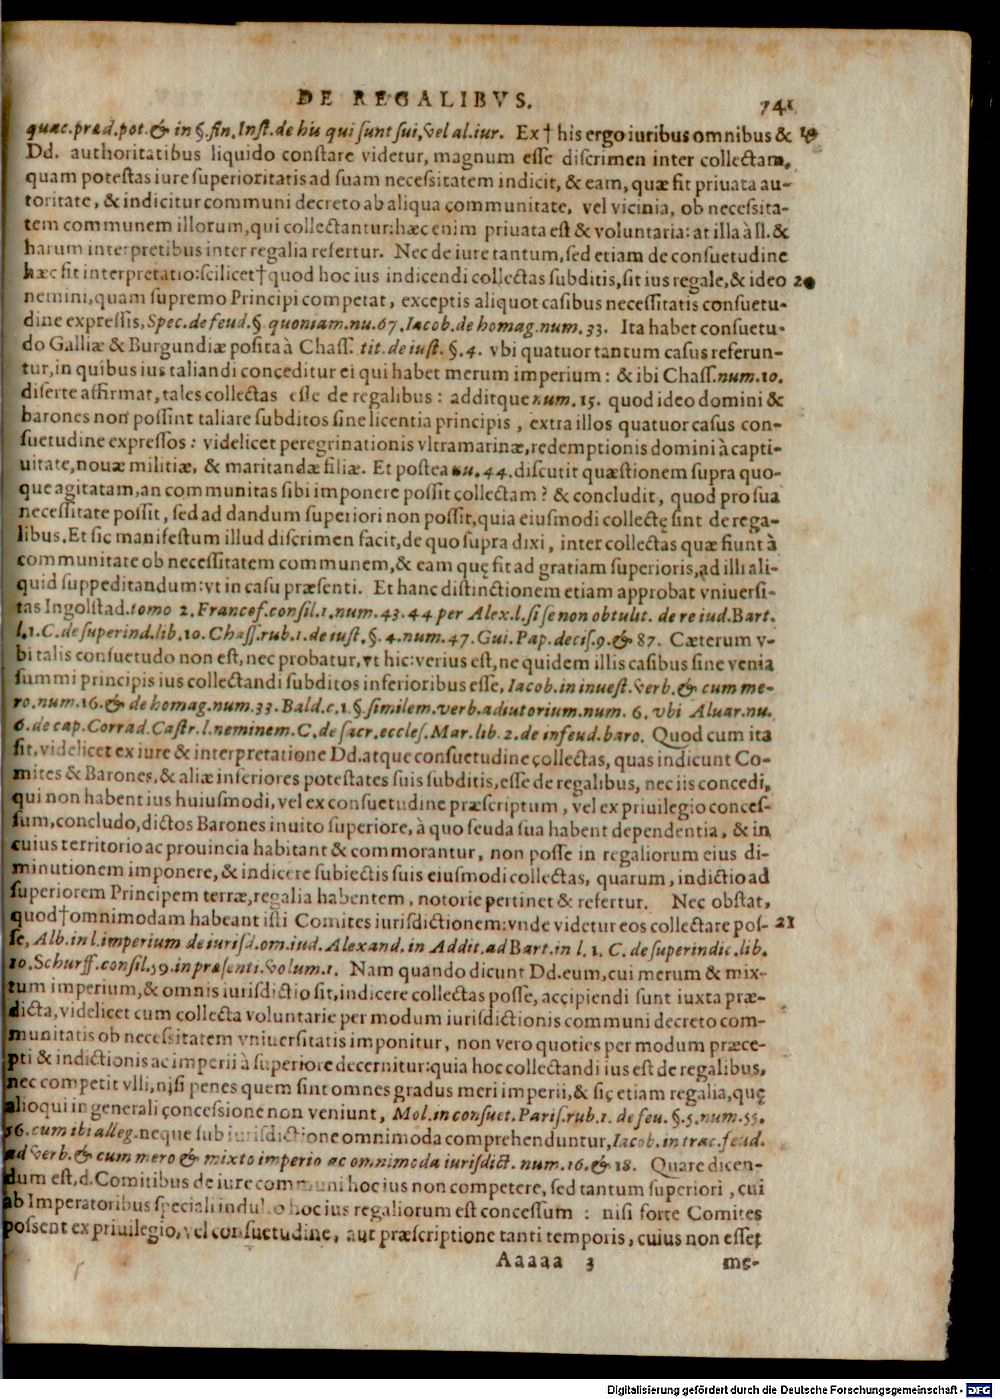 DE REGALIBVS. 741
quac. præd. pot. & in §. fin. Inst. de his qui sunt sui, vel al. iur. Ex † his ergo iuribus omnibus & 19
Dd. authoritatibus liquido constare videtur, magnum esse discrimen inter collectam,
quam potestas iure superioritatis ad suam necessitatem indicit, & eam, quæ fit priuata au-
toritate, & indicitur communi decreto ab aliqua communitate, vel vicinia, ob necessita-
tem communem illorum, qui collectantur: hæc enim priuata est & voluntaria: at illa à ll. &
harum interpretibus inter regalia refertur. Nec de iure tantum, sed etiam de consuetudine
hæc fit interpretatio: scilicet † quod hoc ius indicendi collectas subditis, sit ius regale, & ideo 20
nemini, quam supremo Principi competat, exceptis aliquot casibus necessitatis consuetu-
dine expressis, Spec. de feud. §. quoniam. nu. 67. Iacob. de homag. num. 33. Ita habet consuetu-
do Galliæ & Burgundiæ posita à Chass. tit. de iust. §. 4. vbi quatuor tantum casus referun-
tur, in quibus ius taliandi conceditur ei qui habet merum imperium: & ibi Chass. num. 10.
diserte affirmat, tales collectas esse de regalibus: additque num. 15. quod ideo domini &
barones non possint taliare subditos sine licentia principis, extra illos quatuor casus con-
suetudine expressos: videlicet peregrinationis vltramarinæ, redemptionis domini à capti-
uitate, nouæ militiæ, & maritandæ filiæ. Et postea nu. 44. discutit quæstionem supra quo-
que agitatam, an communitas sibi imponere possit collectam? & concludit, quod pro sua
necessitate possit, sed ad dandum superiori non possit, quia eiusmodi collectę sint de rega-
libus. Et sic manifestum illud discrimen facit, de quo supra dixi, inter collectas quæ fiunt à
communitate ob necessitatem communem, & eam quę fit ad gratiam superioris, ad illi ali-
quid suppeditandum: vt in casu præsenti. Et hanc distinctionem etiam approbat vniuersi-
tas Ingolstad. tomo 2. Francof. consil. 1. num. 43. 44 per Alex. l. si se non obtulit. de re iud. Bart.
l. 1. C. de superind. lib. 10. Chass. rub. 1. de iust. §. 4. num. 47. Gui. Pap. decis. 9. & 87. Cæterum v-
bi talis consuetudo non est, nec probatur, vt hic: verius est, ne quidem illis casibus sine venia
summi principis ius collectandi subditos inferioribus esse, Iacob. in inuest. verb. & cum me-
ro. num. 16. & de homag. num. 33. Bald. c. 1. §. similem. verb. adiutorium. num. 6. vbi Aluar. nu.
6. de cap. Corrad. Castr. l. neminem. C. de sacr. eccles. Mar. lib. 2. de infeud. baro. Quod cum ita
sit, videlicet ex iure & interpretatione Dd. atque consuetudine collectas, quas indicunt Co-
mites & Barones, & aliæ inferiores potestates suis subditis, esse de regalibus, nec iis concedi,
qui non habent ius huiusmodi, vel ex consuetudine præscriptum, vel ex priuilegio conces-
sum, concludo, dictos Barones inuito superiore, à quo feuda sua habent dependentia, & in
cuius territorio ac prouincia habitant & commorantur, non posse in regaliorum eius di-
minutionem imponere, & indicere subiectis suis eiusmodi collectas, quarum, indictio ad
superiorem Principem terræ, regalia habentem, notorie pertinet & refertur. Nec obstat,
quod † omnimodam habeant isti Comites iurisdictionem: vnde videtur eos collectare pos- 21
se, Alb. in l. imperium de iurisd. om. iud. Alexand. in Addit. ad Bart. in l. 1. C. de superindic. lib.
10. Schurff. consil. 59. in præsenti. volum. 1. Nam quando dicunt Dd. eum, cui merum & mix-
tum imperium, & omnis iurisdictio sit, indicere collectas posse, accipiendi sunt iuxta præ-
dicta, videlicet cum collecta voluntarie per modum iurisdictionis communi decreto com-
munitatis ob necessitatem vniuersitatis imponitur, non vero quoties per modum præce-
pti & indictionis ac imperii à superiore decernitur: quia hoc collectandi ius est de regalibus,
nec competit vlli, nisi penes quem sint omnes gradus meri imperii, & sic etiam regalia, quę
alioqui in generali concessione non veniunt, Mol. in consuet. Paris. rub. 1. de feu. §. 5. num. 55.
56. cum ibi alleg. neque sub iurisdictione omnimoda comprehenduntur, Iacob. in trac. feud.
ad verb. & cum mero & mixto imperio ac omnimoda iurisdict. num. 16. & 18. Quare dicen-
dum est, d. Comitibus de iure communi hoc ius non competere, sed tantum superiori, cui
ab Imperatoribus speciali indulto hoc ius regaliorum est concessum: nisi forte Comites
possent ex priuilegio, vel consuetudine, aut præscriptione tanti temporis, cuius non esset
Aaaaa 3 me-
Digitalisierung gefördert durch die Deutsche Forschungsgemeinschaft - DFG